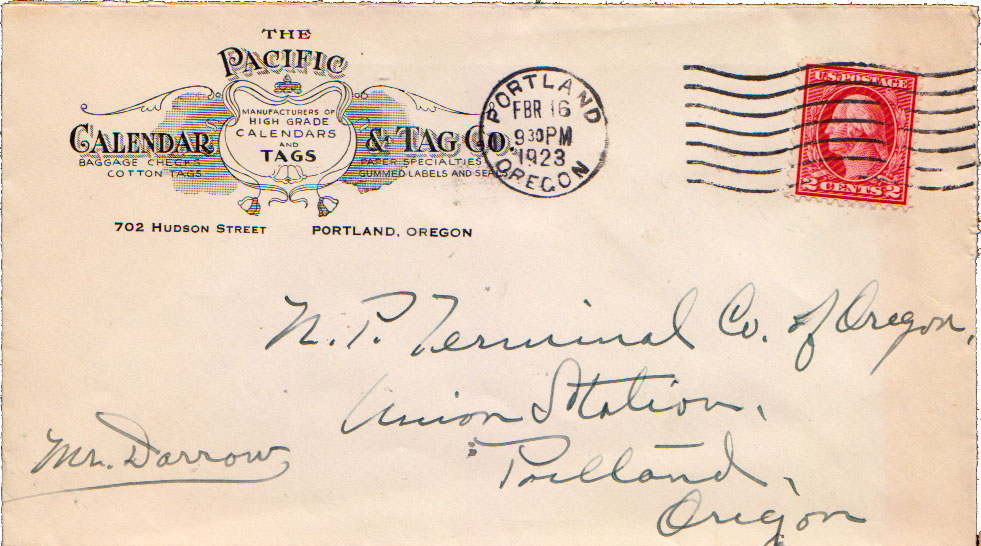 THE
PACIFIC
CALENDAR & TAG CO.
MANUFACTURERS OF
HIGH GRADE
CALENDARS
AND
TAGS
BAGGAGE CHECKS
COTTON TAGS
PAPER SPECIALTIES
GUMMED LABELS AND SEALS
702 HUDSON STREET PORTLAND, OREGON
PORTLAND
FBR 16
930PM
1923
OREGON
U.S. POSTAGE
2 CENTS 2
N. P. Terminal Co. of Oregon,
Union Station,
Portland,
Oregon
Mr. Darrow